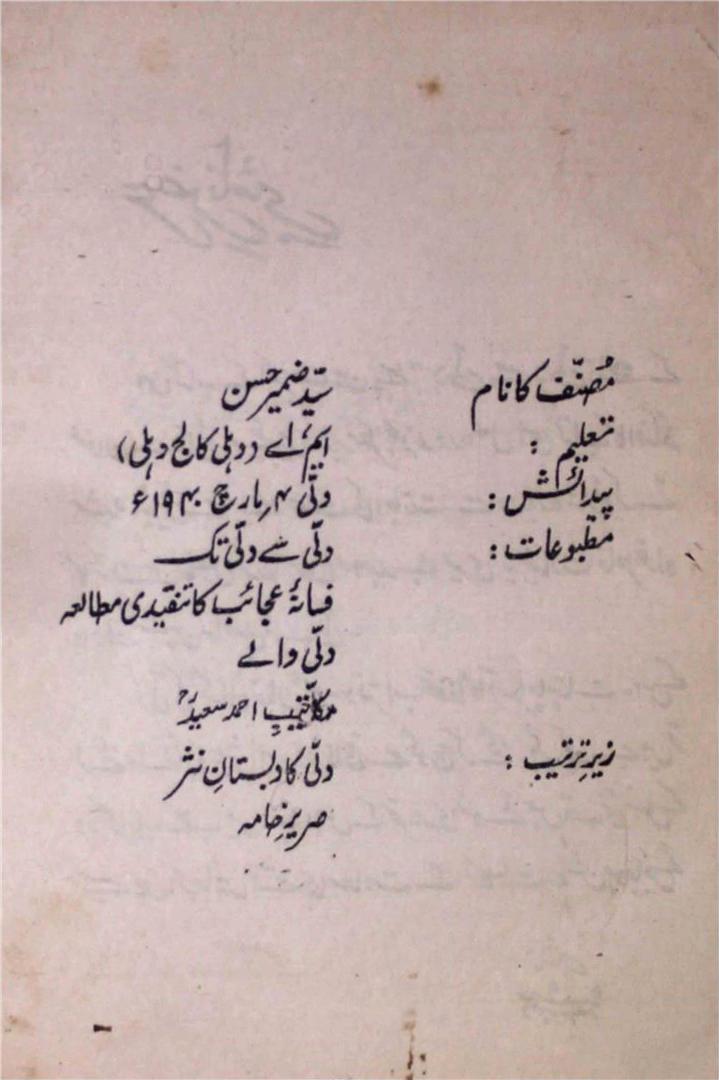 مُصنّف کا نام سیّد ضمیر حسن
تعلیم : ایم، اے (دہلی کالج دہلی)
پیدائش : دلّی ۴؍مارچ ۱۹۴۰ء
مطبوعات : دلّی سے دلّی تک
فسانۂ عجائب کا تنقیدی مطالعہ
دلّی والے
مکاتیبِ احمد سعیدؒ
زیرِ ترتیب : دلّی کا دبستانِ نثر
صریرِ خامہ